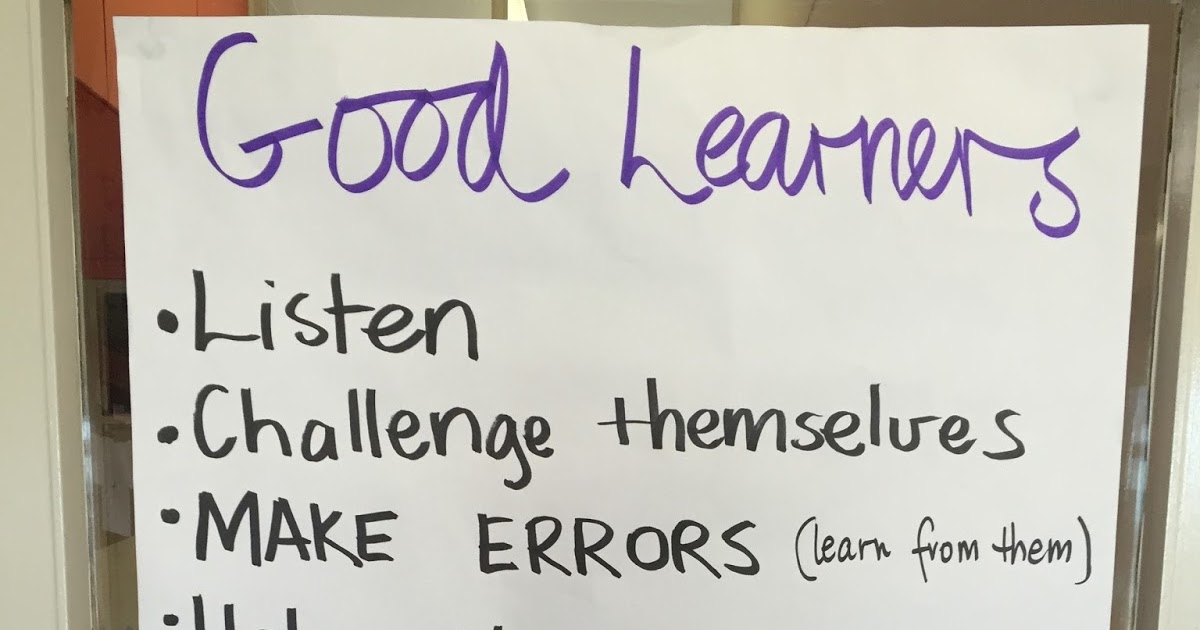 Good Learners
• Listen
• Challenge themselves
• MAKE ERRORS (learn from them)